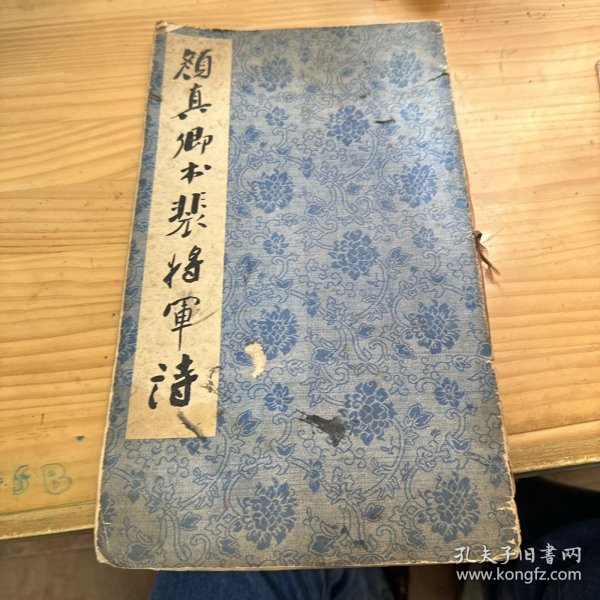 顏真卿书裴将軍诗
5B
孔夫子旧書网
www.kongfz.com